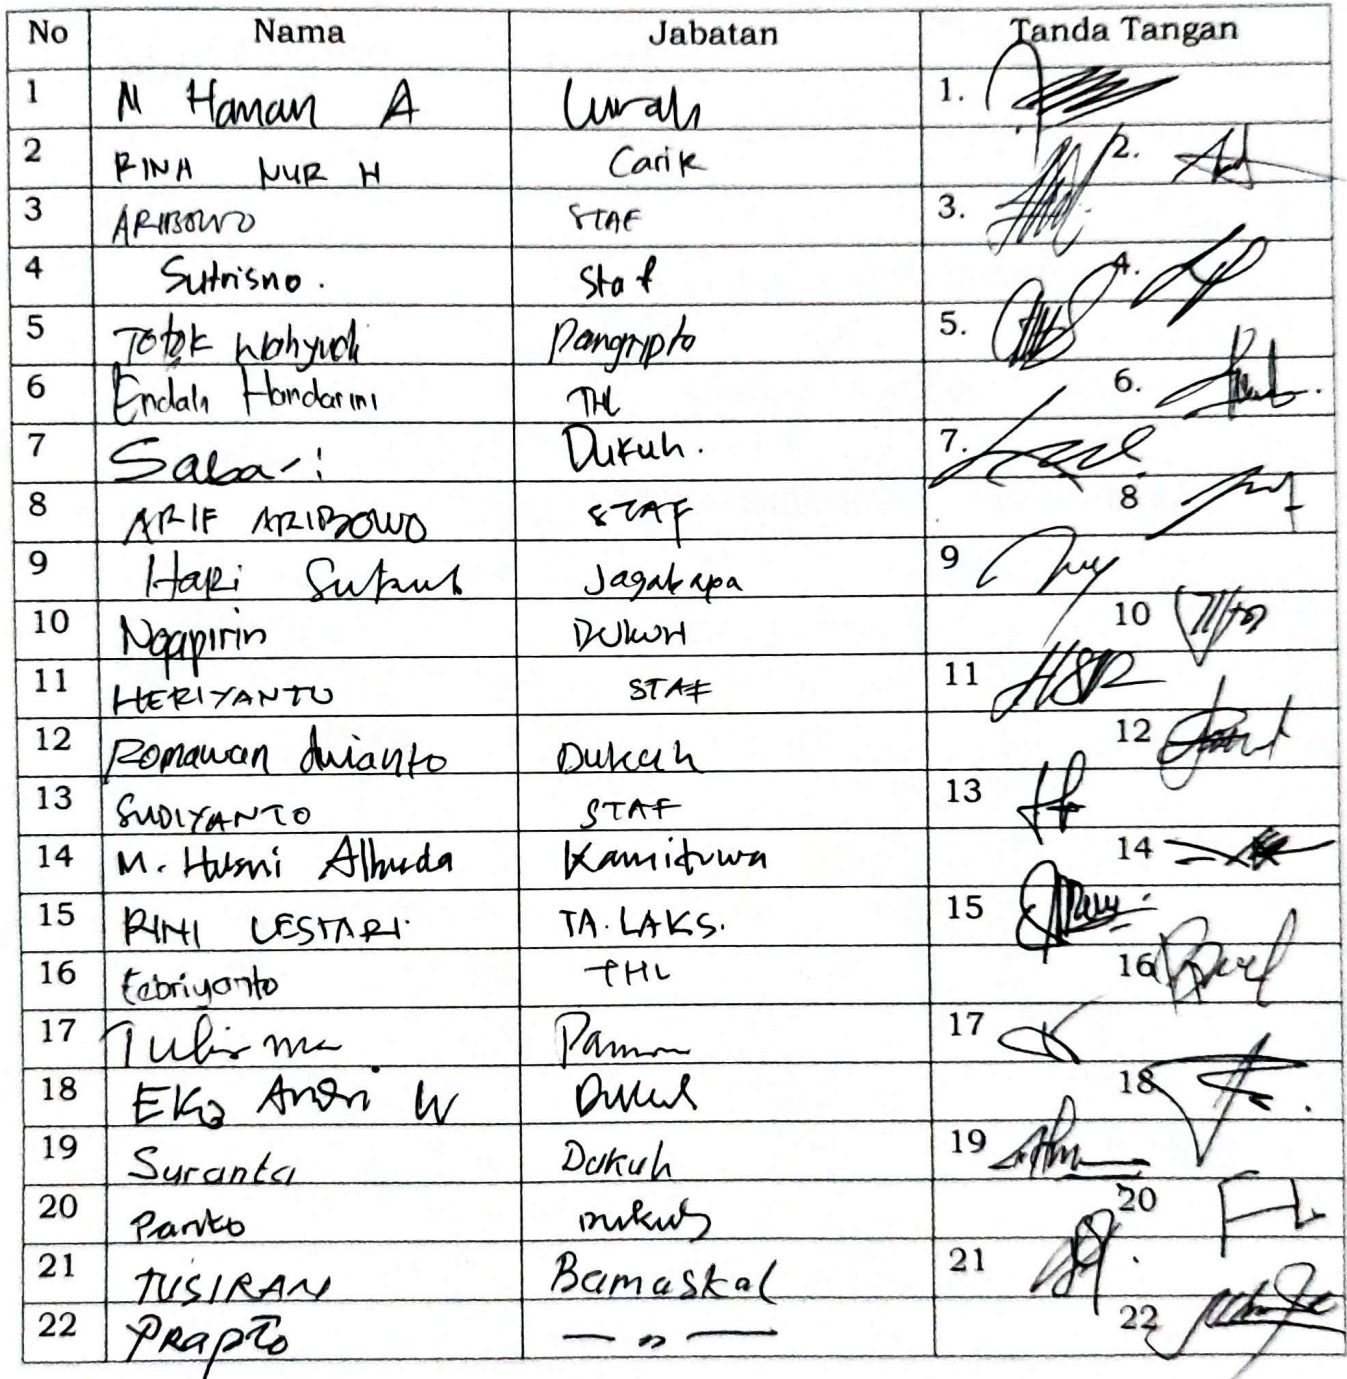 No Nama Jabatan Tanda Tangan
1 M Haman A Lurah 1.
2 RINA NUR H Carik 2.
3 ARIBOWO STAF 3.
4 Sutrisno. Staf 4.
5 Totok Wahyudi Pangripto 5.
6 Endah Handarini THL 6.
7 Sabari Dukuh. 7.
8 ARIF ARIBOWO STAF 8
9 Hari Jagabaya 9
10 Ngapirin DUKUH 10
11 HERIYANTO STAF 11 HSR
12 Romawan dwianto Dukuh 12
13 SUDIYANTO STAF 13
14 M. Husni Alhuda Kamituwa 14
15 RINI LESTARI TA. LAKS. 15
16 Febriyanto THL 16
17 17
18 EKO Andri W Dukuh 18
19 Suranta Dukuh 19
20 Dukuh 20
21 TUSIRAN Bamuskal 21
22 PRAPTO — " — 22